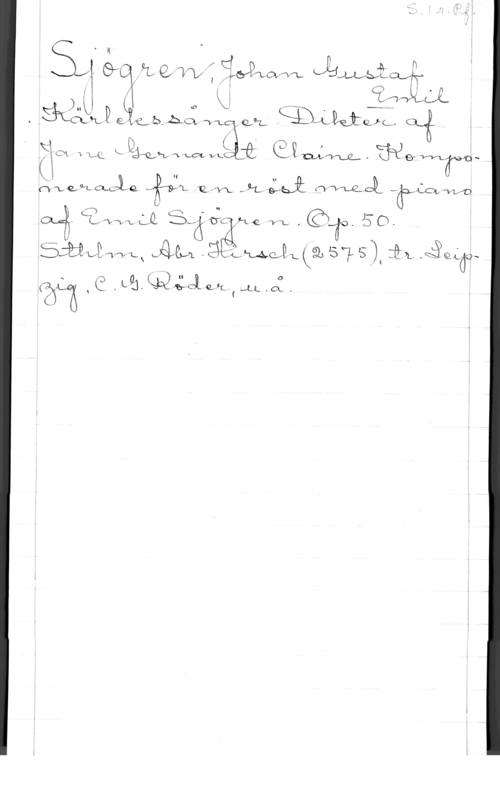 S. 1 r. Pf.
Sjögren, Johan Gustaf
Emil
Kärlekssånger Dikter af
Jane Gernandt Claine. Kompo-
nerade för en röst med piano
af Emil Sjögren. Op. 50.
Sthlm, Abr. Hirsch (2575), tr. Leip-
zig, C. G. Röder, u. å.